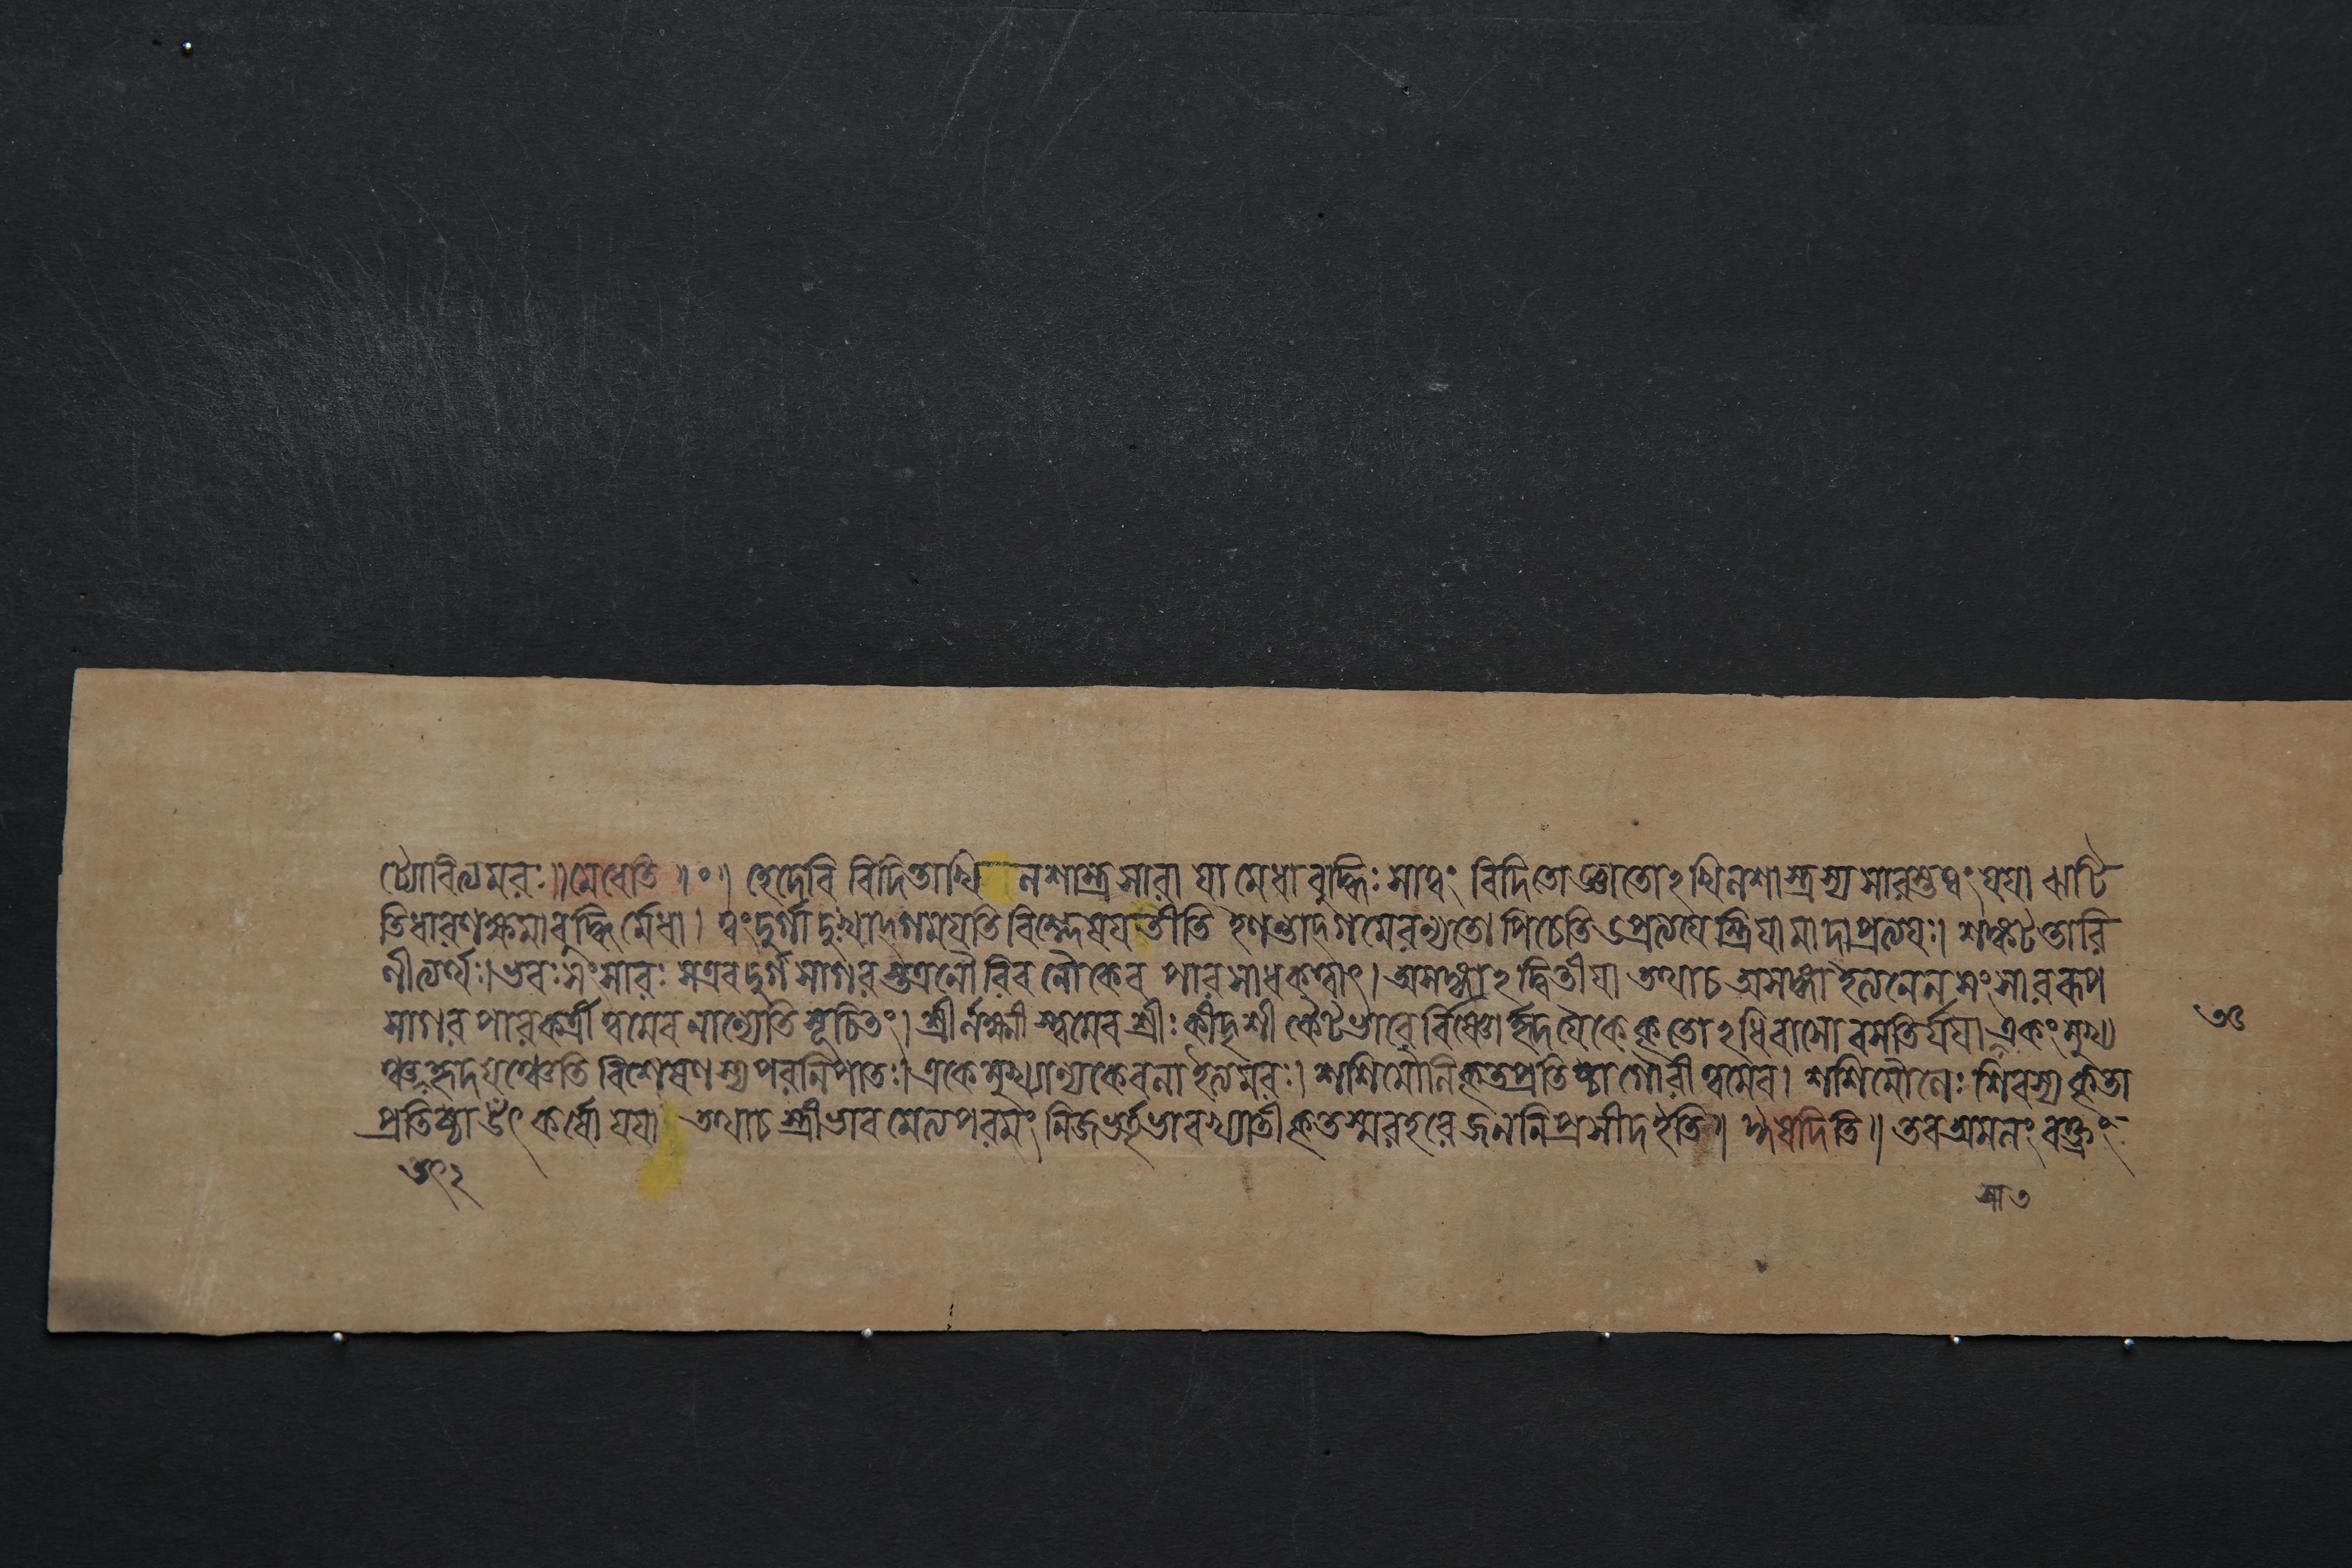 ট্যোরিত্যমরঃ॥মেধেতি॥০॥ হেদেবি বিদিতাখি লশাস্ত্রসারা যা মেধা বুদ্ধিঃ সাত্বং বিদিতো জ্ঞাতোঽখিলশাস্ত্রস্য সারস্তত্বং যযা ঝাটি
তিধারণক্ষমাবুদ্ধির্মেধা। ত্বংদুর্গা দুঃখাদ্গময়তি বিশ্লেষয়তীতি গমেরন্যতো পিচেতি ডপ্রত্যয়ে স্ত্রিয়ামাদাপ্রত্যয়ঃ। শঙ্কটতারি
ণীত্যর্থঃ। ভবঃ সংসারঃ সএবদুর্গসাগরস্তত্রনৌরিব নৌকেব পারসাধকত্বাৎ। অসঙ্গাঽদ্বিতীয়া তথাচ অসঙ্গা ইত্যনেন সংসাররূপ
সাগর পারকর্ত্রী ত্বমেব নান্যেতি সূচিতং। শ্রীর্লক্ষ্মীস্ত্বমেব শ্রীঃ কীদৃশী কৈটভারের্বিষ্ণোর্হৃদয়ৈকে কৃতোঽধিবাসো বসতির্যয়া একং মুখ্য
ঞ্চতদ্হৃদয়ঞ্চেতি বিশেষণস্য পরনিপাতঃ। একে মুখ্যান্যকেবলা ইত্যমরঃ। শশিমৌলিকৃতপ্রতিষ্ঠা গৌরী ত্বমেব। শশিমৌলেঃ শিবস্য কৃতা
প্রতিষ্ঠা উৎকর্ষো যয়া তথাচ স্ত্রীভাবমেত্যপরমং জননিপ্রসীদ ইতি॥ ঈষদিতি॥ তবঅমলং বক্ত্রং
সা৩